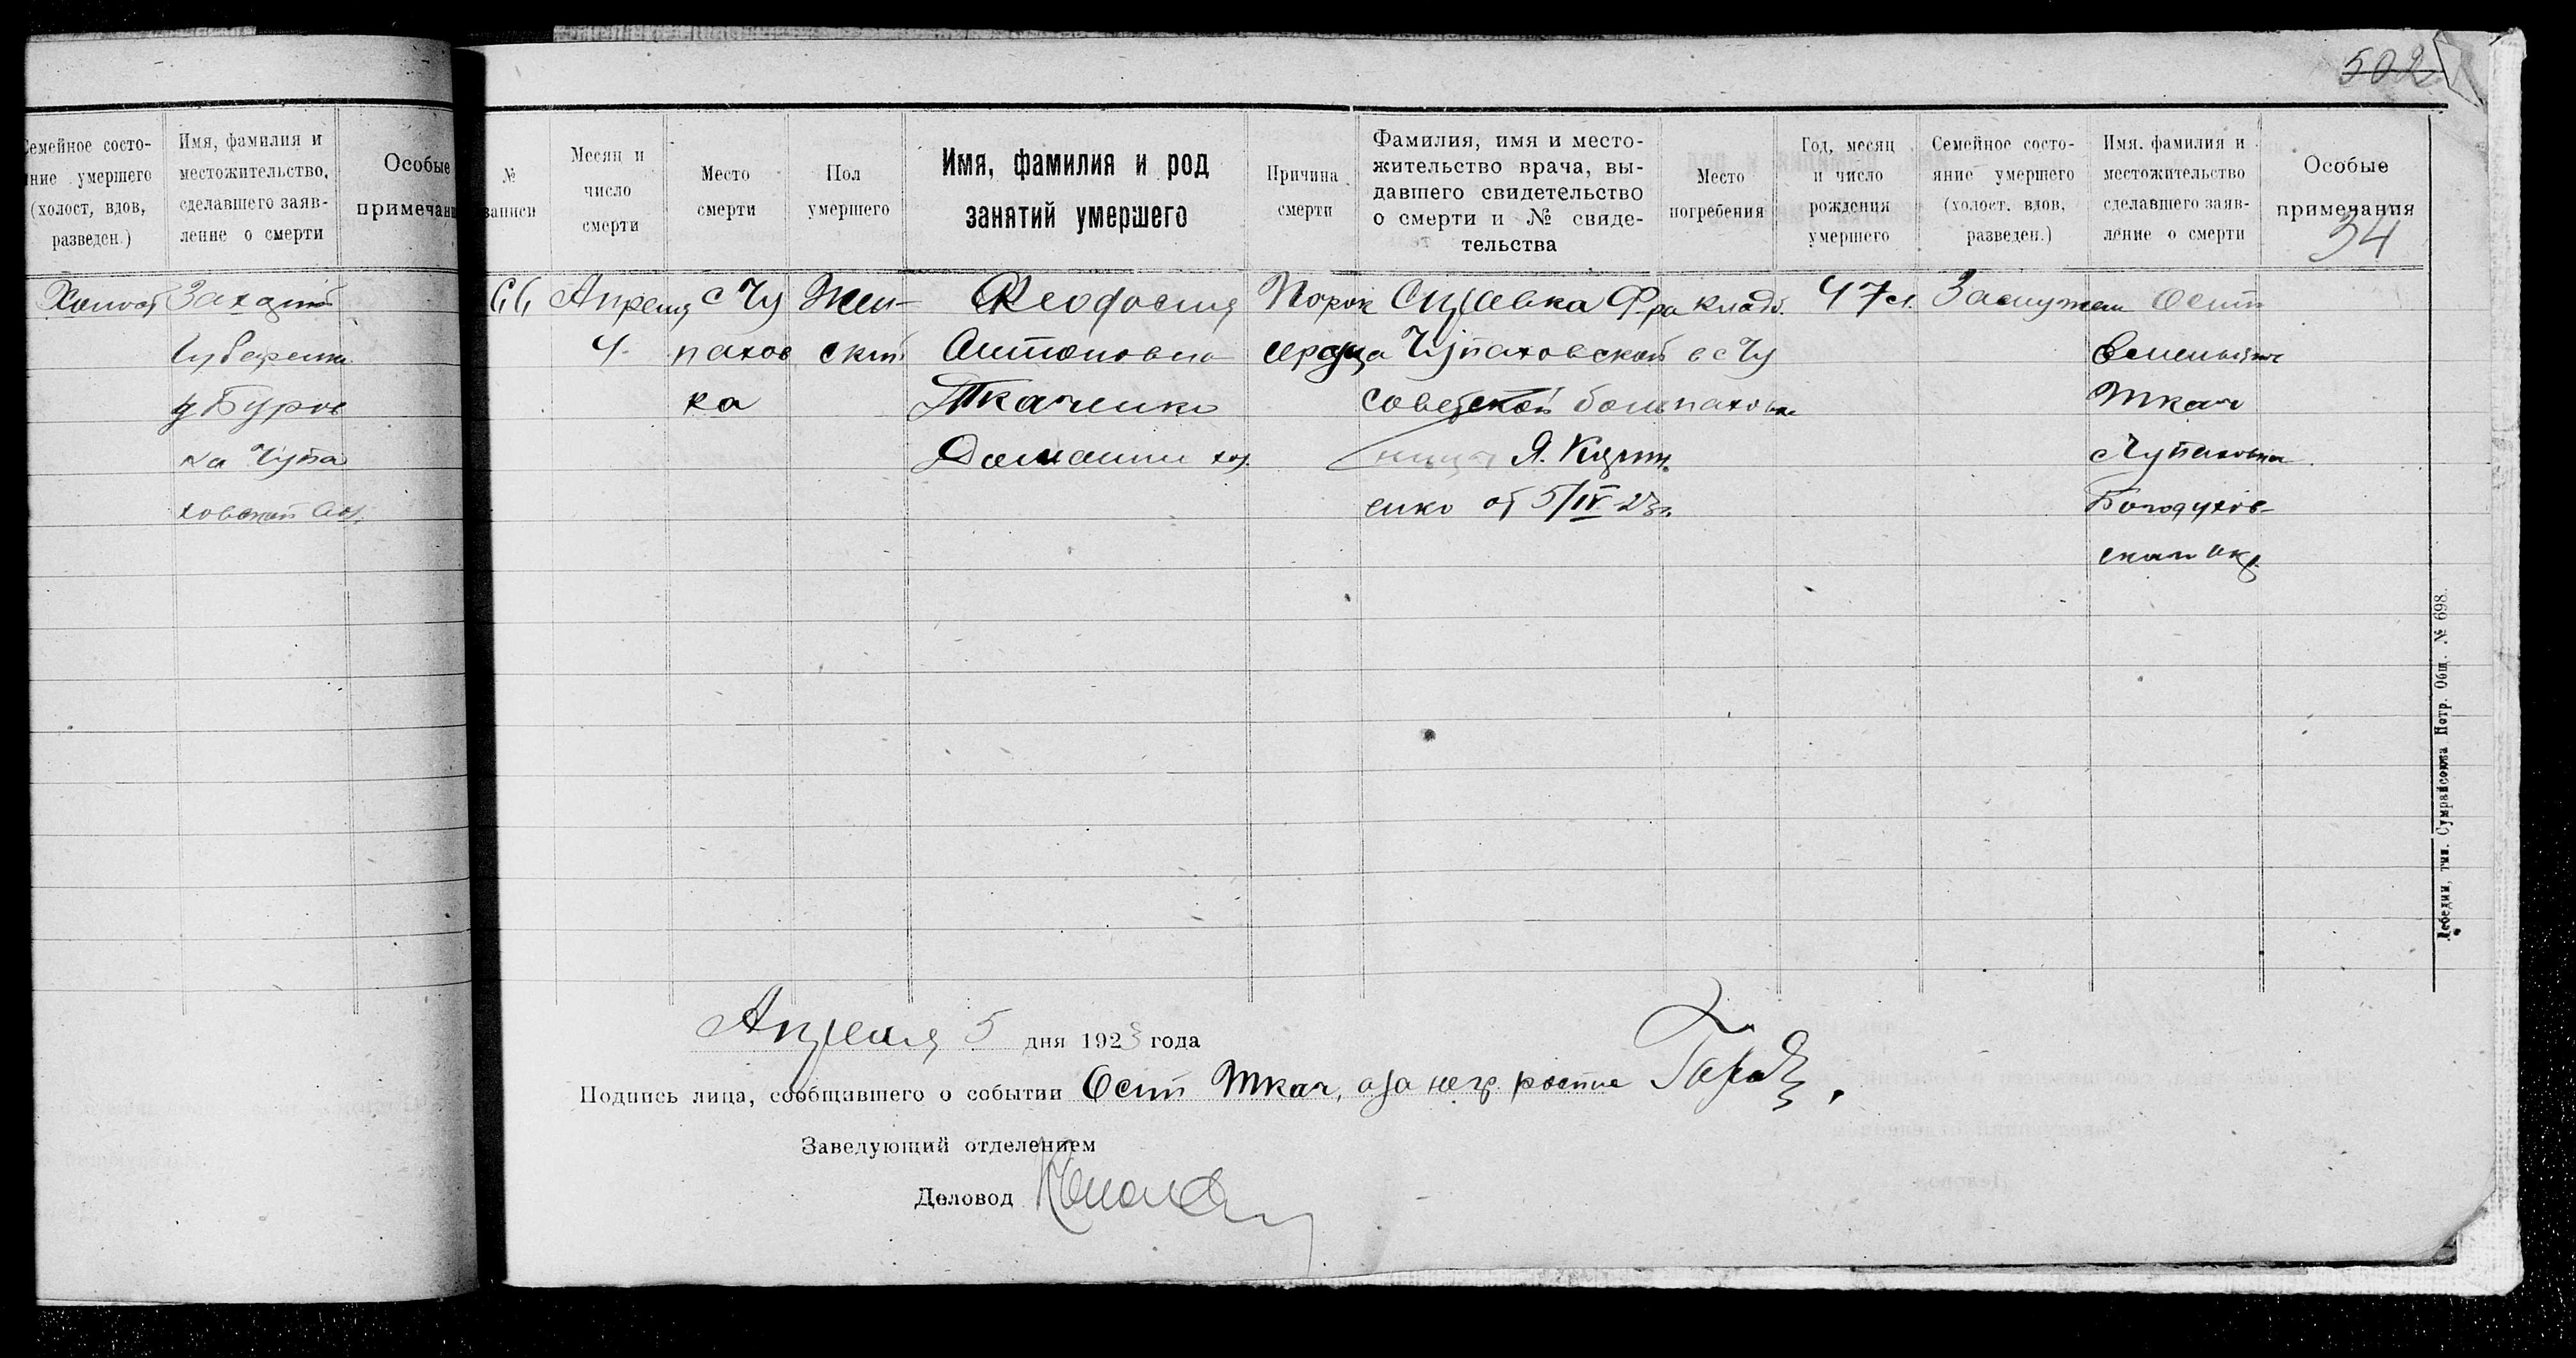 502
Семейное состо-
яние умершего
(холост, вдов,
разведен.)
Имя, фамилия и
местожительство,
сделавшего заяв-
ление о смерти
Особые
примечани
Холост
Захарий
д Буров
ка Чупа
ховской
№
записи
Месяц и
число
смерти
Место
смерти
Пол
умершего
Имя, фамилия и род
занятий умершего
Причина
смерти
Фамилия, имя и место-
жительство врача, вы-
давшего свидетельство
о смерти и № свиде-
тельства
Место
погребения
Год, месяц
и число
рождения
умершего
Семейное состо-
яние умершего
(холост. вдов,
разведен.)
Имя. фамилия и
местожительство
сделавшего заяв-
ление о смерти
Особые
примечания
34
66
Апреля
4
с Чу
пахов
ка
Жен-
ский
Феодосия
Антоновна
Ткаченко
Домашн хоз.
Порок
сердца
Справка Ф-ра
Чупаховской
советской боль
ницы Я.
енко от 5/IV-23г.
кладб.
в с Чу
паховке
47 л.
Замужем
Осип
Семенович
Ткач
Чупаховка
Богодухов-
ского окр.
Апреля 5 дня 1923 года
Подпись лица, сообщившего о событии Осип Ткач, а за негр роспис
Заведующий отделением
Деловод
Лебедин, тип. Сумрайсоюза Потр. Общ. № 698.